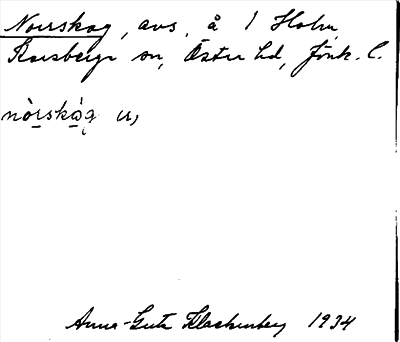 Norrskog, avs. å 1 Holm
Rusbergs sn, Östra hd, Jönk. l.
nòrskòg u,
Anna-Greta Klackenberg 1934